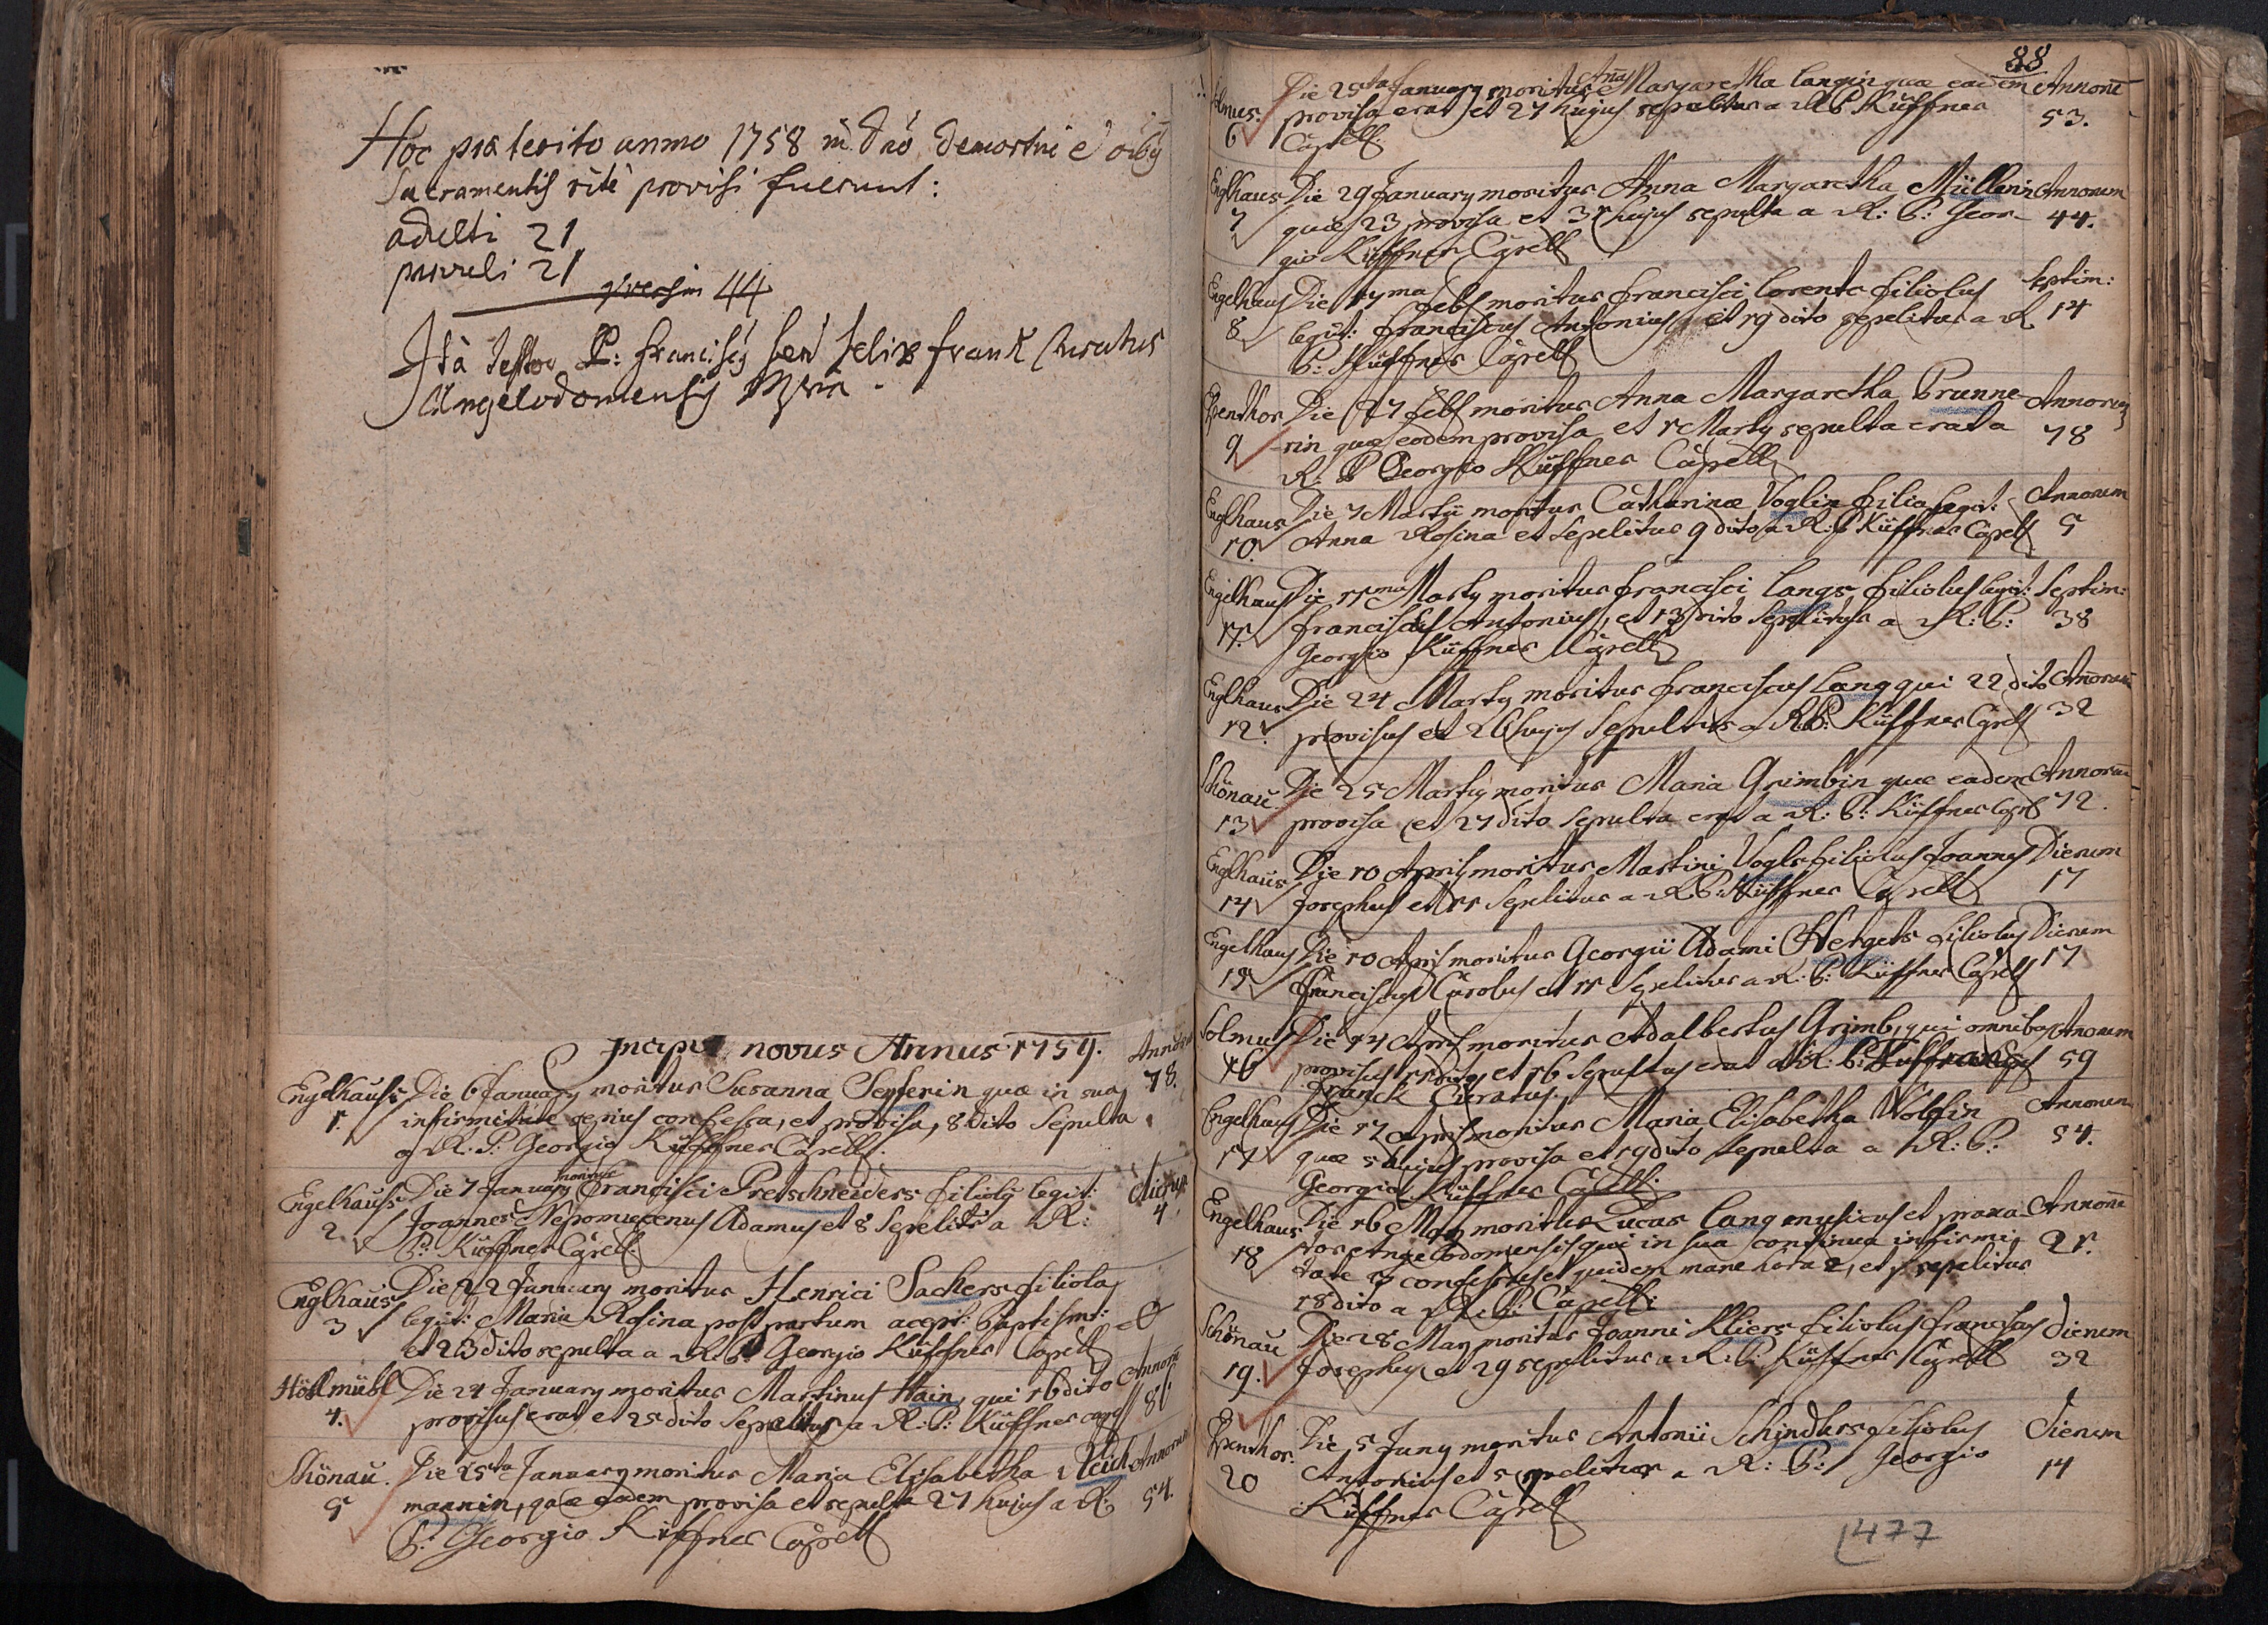 Hoc praeterito anno 1758 in Dno demortui et oĩbꝯ
Sacramentis ritè provisi fuerunt:
adulti 21
parvuli 21
44
Ità testor P: Franciscꝯ Felix Frank Curatus
Angelodomensis
Incipit novus Annus 1759.
Engelhauß Die 6 January moritur Susanna Seyferin quae in sua Annorum
1. infirmitate confessa, et provisa, 8 dito Sepulta 78.
a R. P. Georgio Küffner Capell:
Engelhauß Die 7 January moritur Francisci Pretschneiders filiolꝯ legit: dierum
2. Joannes Nepomucenus Adamus et 8 Sepelitr a R: 4
P: Küffner Capell.
Englhaus Die 22 January moritur Henrici Sachers filiola
3 legit: Maria Rosina post partum acept: baptism:
et 23 dito sepulta a R. P. Georgio Küffner Capell
Die 24 January moritur Martinus Hain, qui 16 dito Annorũ
4. provisus erat et 25 dito Sepelitur a R. P: Küffner Capell 86
Schönau. Die 25ta January moritur Maria Elisabetha Reich Annorum
5 mannin, quae eadem provisa et sepulta 27 hujus a R: 54.
P: Georgio Küffner Capell
88
Die 25ta January moritur Anna Margaretha Langin quae eadem Annorũ
6 provisa erat et 27 hujus sepelitur a R P Küffner 53.
Capell
Englhaus Die 29 January moritur Anna Margaretha Müllerin Annorum
7 quae 23 provisa et 31 hujus sepulta a R: P: Geor- 44.
gio Küffner Capell
Engelhaus Die 17ma Feb moritur Francisci Lorentz filiolus Septim:
8 legit: Franciscus Antonius et 19 dito sepelitur a R 14
P: Küffner Capell
Die 27 Feb moritur Anna Margaretha Prunne- Annorum
9 rin quae eodem provisa et 1 Marty sepulta erat a 78
R: P Georgio Küffner Capell
Englhaus Die 7 Martii moritur Catharinae Voglin filia legit: Annorum
10. Anna Rosina et Sepelitur 9 dito a R: P Küffner Capell 5
Engelhaus Die 11ma Marty moritur Francisci Langs filiolus legit: Septim:
11. Franciscus Antonius, et 13 dito Sepelitur a R: P: 38
Georgio Küffner Capell
Englhaus Die 24 Marty moritur Franciscus Lang qui 22 dito Annorum
12. provisus et 26 hujus Sepultus a R.P: Küffner Capell 32
Schönau Die 25 Marty moritur Maria Grimbin quae eadem Annorum
13 provisa et 27 dito Sepulta erat a R: P: Küffner Capell 72.
Englhaus Die 10 Aprily moritur Martini Vogls filiolus Joannes Dierum
14 Josephus et 11 Sepelitur a R P: Küffner Capell 17
Engelhaus Die 10 Apris moritur Georgii Adami Hergets filiolus Dierum
15 Franciscus Carolus et 11 Sepelitur a R. P: Küffner Capell 17
Solmus Die 14 Apris moritur Adalbertus Grimb, qui omnibus Annorum
16 provisus 11 dito, et 16 Sepultus erat a R: P: 59
Franck Curatus.
Engelhaus Die 17 Apris moritur Maria Elisabetha Wolfin Annorum
17 quae 5 hujus provisa et 19 dito sepulta a R: P: 54.
Georgio Küffner Capell.
Engelhaus Die 16 May moritur Lucas Lang musicus et Annorũ
18 Angelodomensis qui in sua continua infirmi 21.
tate confessus et quidem mane hora 2, et sepelitur
18 dito a R. P: Capell:
Schönau Die 28 May moritur Joanni Kliers filiolus Franciscus Dierum
19. Josephus et 29 sepelitur a R. P: Küffner Capell 32
Die 5 Juny moritur Antonii Schindlers filiolus Dierum
20 Antonius et sepelitur a R: P: Georgio 14
Küffner Capell
477